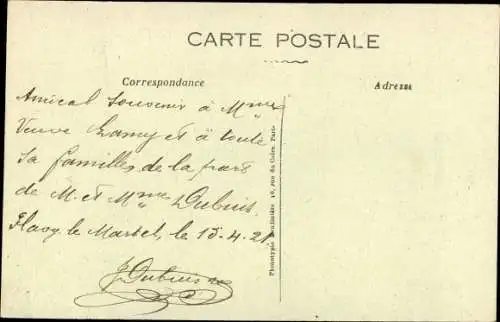 CARTE POSTALE
Correspondance
Adresse
Amical Souvenir à Mme
Veuve Lamy et à toute
Sa famille, de la part
de M. et Mme Dubuis,
Flavy le Martel, le 15.4.21
Dubuis
Phototypie Baudinière 16, rue du Caire, Paris